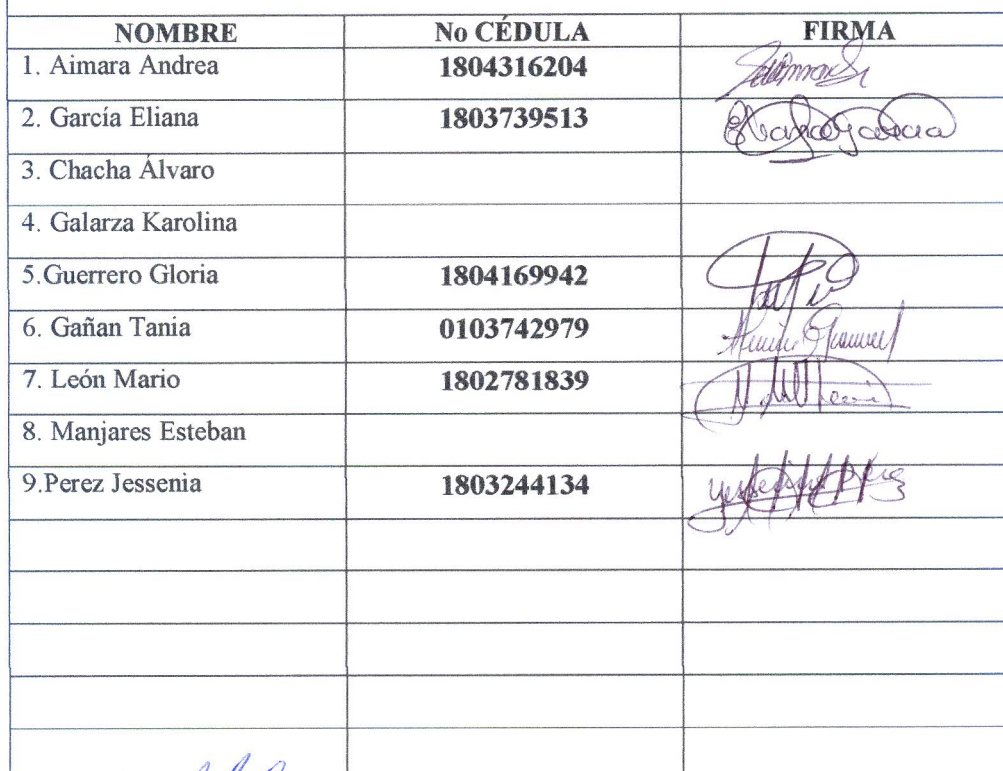 NOMBRE No CÉDULA FIRMA
1. Aimara Andrea 1804316204
2. García Eliana 1803739513 Eliana Garcia
3. Chacha Álvaro
4. Galarza Karolina
5.Guerrero Gloria 1804169942
6. Gañan Tania 0103742979
7. León Mario 1802781839
8. Manjares Esteban
9.Perez Jessenia 1803244134